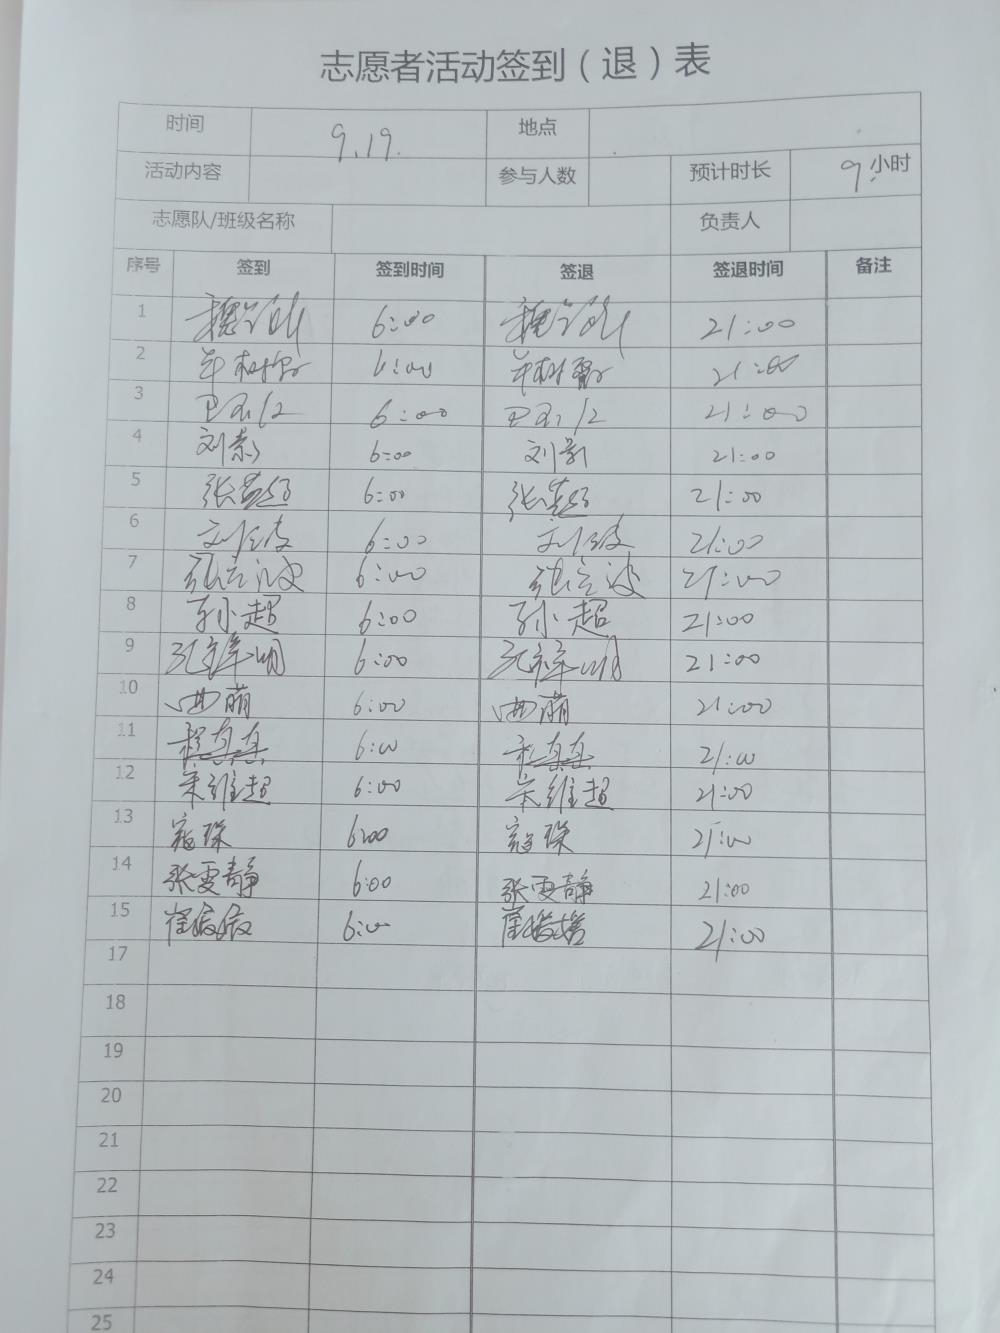 志愿者活动签到（退）表
时间 9.19. 地点
活动内容 参与人数 预计时长 9小时
志愿队/班级名称 负责人
序号 签到 签到时间 签退 签退时间 备注
1 6:00 21:00
2 6:00 21:00
3 6:00 21:00
4 刘 6:00 刘 21:00
5 张 6:00 张 21:00
6 刘 6:00 刘 21:00
7 张立波 6:00 张立波 21:00
8 孙超 6:00 孙超 21:00
9 6:00 21:00
10 曲萌 6:00 曲萌 21:00
11 程真真 6:00 程真真 21:00
12 宋维超 6:00 宋维超 21:00
13 寇琛 6:00 寇琛 21:00
14 张雯静 6:00 张雯静 21:00
15 崔 6:00 崔 21:00
17
18
19
20
21
22
23
24
25